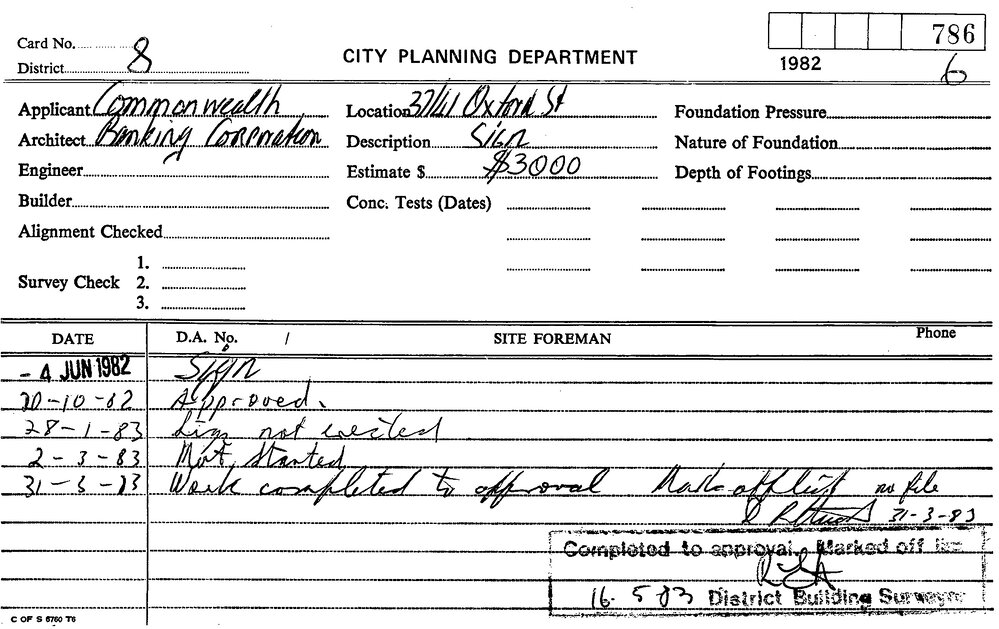 Card No. 786
District 8 CITY PLANNING DEPARTMENT 1982 6
Applicant Commonwealth Location 37/41 Oxford St Foundation Pressure
Architect Banking Corporation Description Sign Nature of Foundation
Engineer Estimate $ $3000 Depth of Footings
Builder Conc. Tests (Dates)
Alignment Checked
1.
Survey Check 2.
3.
DATE D.A. No. / SITE FOREMAN Phone
- 4 JUN 1982 Sign
20-10-82 Approved.
28-1-83 Sign not erected
2-3-83 Not Started
31-3-83 Work completed to approval Mark off list no file
31-3-83
Completed to approval. Marked off list
16. 5 83 District Building Surveyor
C OF S 6760 T6